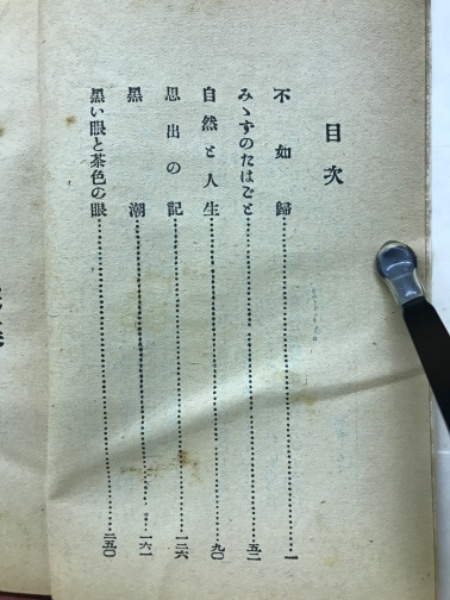 目次
不如歸……一
みゝずのたはごと……五二
自然と人生……九〇
思出の記……一二六
黑潮……一六一
黑い眼と茶色の眼……二五〇